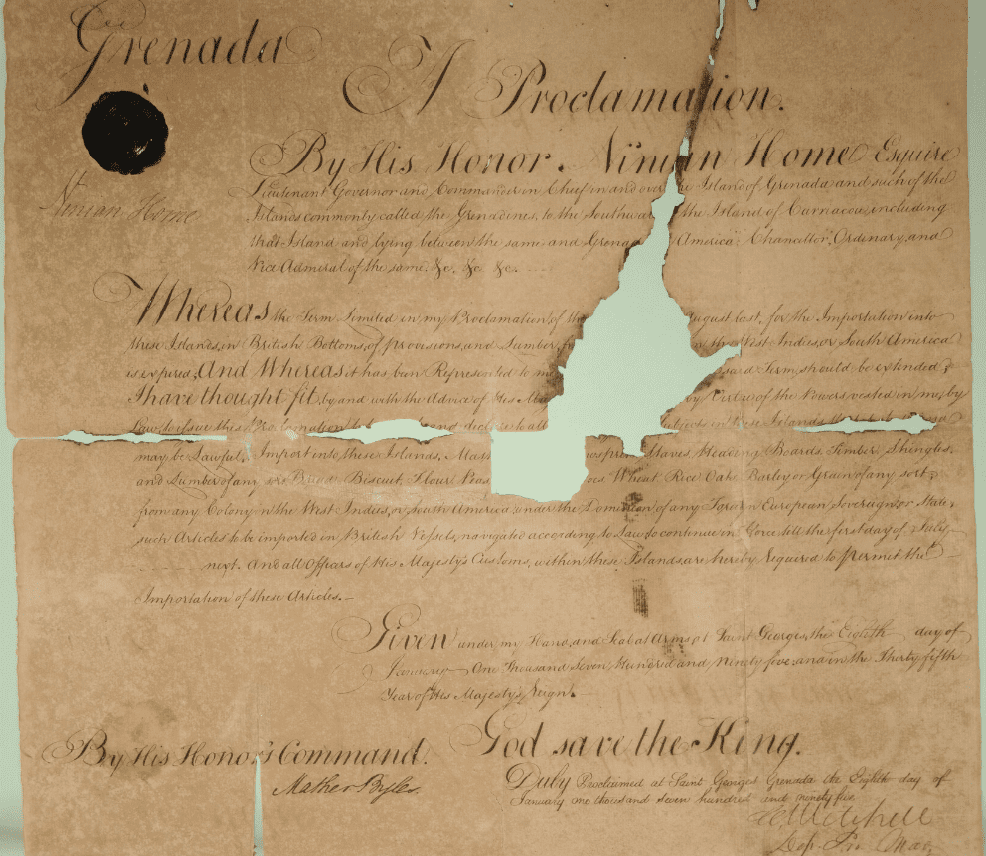 Grenada
A Proclamation.
By His Honor Ninian Home Esquire
Ninian Home
Lieutenant Governor and Commander in Chief in and over the Island of Grenada and such of the
Islands commonly called the Grenadines, to the Southwa the Island of Carriacou, including
that Island and lying between the same and Grena America: Chancellor, Ordinary, and
Vice Admiral of the same, &c. &c. &c.
Whereas the Term Limited in my Proclamation, of th August last, for the Importation into
these Islands, in British Bottoms, of provisions, and Lumber, f n the West Indies, or South America
is expired, And Whereas it has been Represented to me said Term, should be extended;
I have thought fit, by and with the Advice of His Maj by Virtue of the Powers vested in me, by
Law, to issue this Proclamation and declare to all Subjects in these Islands
may be Lawful, Import into these Islands, Mas Staves, Heading Boards, Timber, Shingles,
and Lumber of any Bread, Biscuit, Flour Peas oes Wheat, Rice Oats Barley or Grain of any sort;
from any Colony in the West Indies, or South America; under the Dominion of any Foreign European Sovereign or State;
such Articles to be imported in British Vessels, navigated according to Law, to continue in Force till the first day of July
next. And all Officers of His Majesty's Customs, within these Islands, are hereby Required to permit the
Importation of these Articles.
Given under my Hand, and Seal at Arms, at Saint Georges, the Eighth day of
January One Thousand Seven Hundred and Ninety five; and in the Thirty fifth
Year of His Majesty's Reign.
God save the King.
By His Honor's Command.
Mather Byles.
Duly Proclaimed at Saint Georges Grenada the Eighth day of
January one thousand and seven hundred and ninety five
Mitchell
Dep. Pro. Mar.